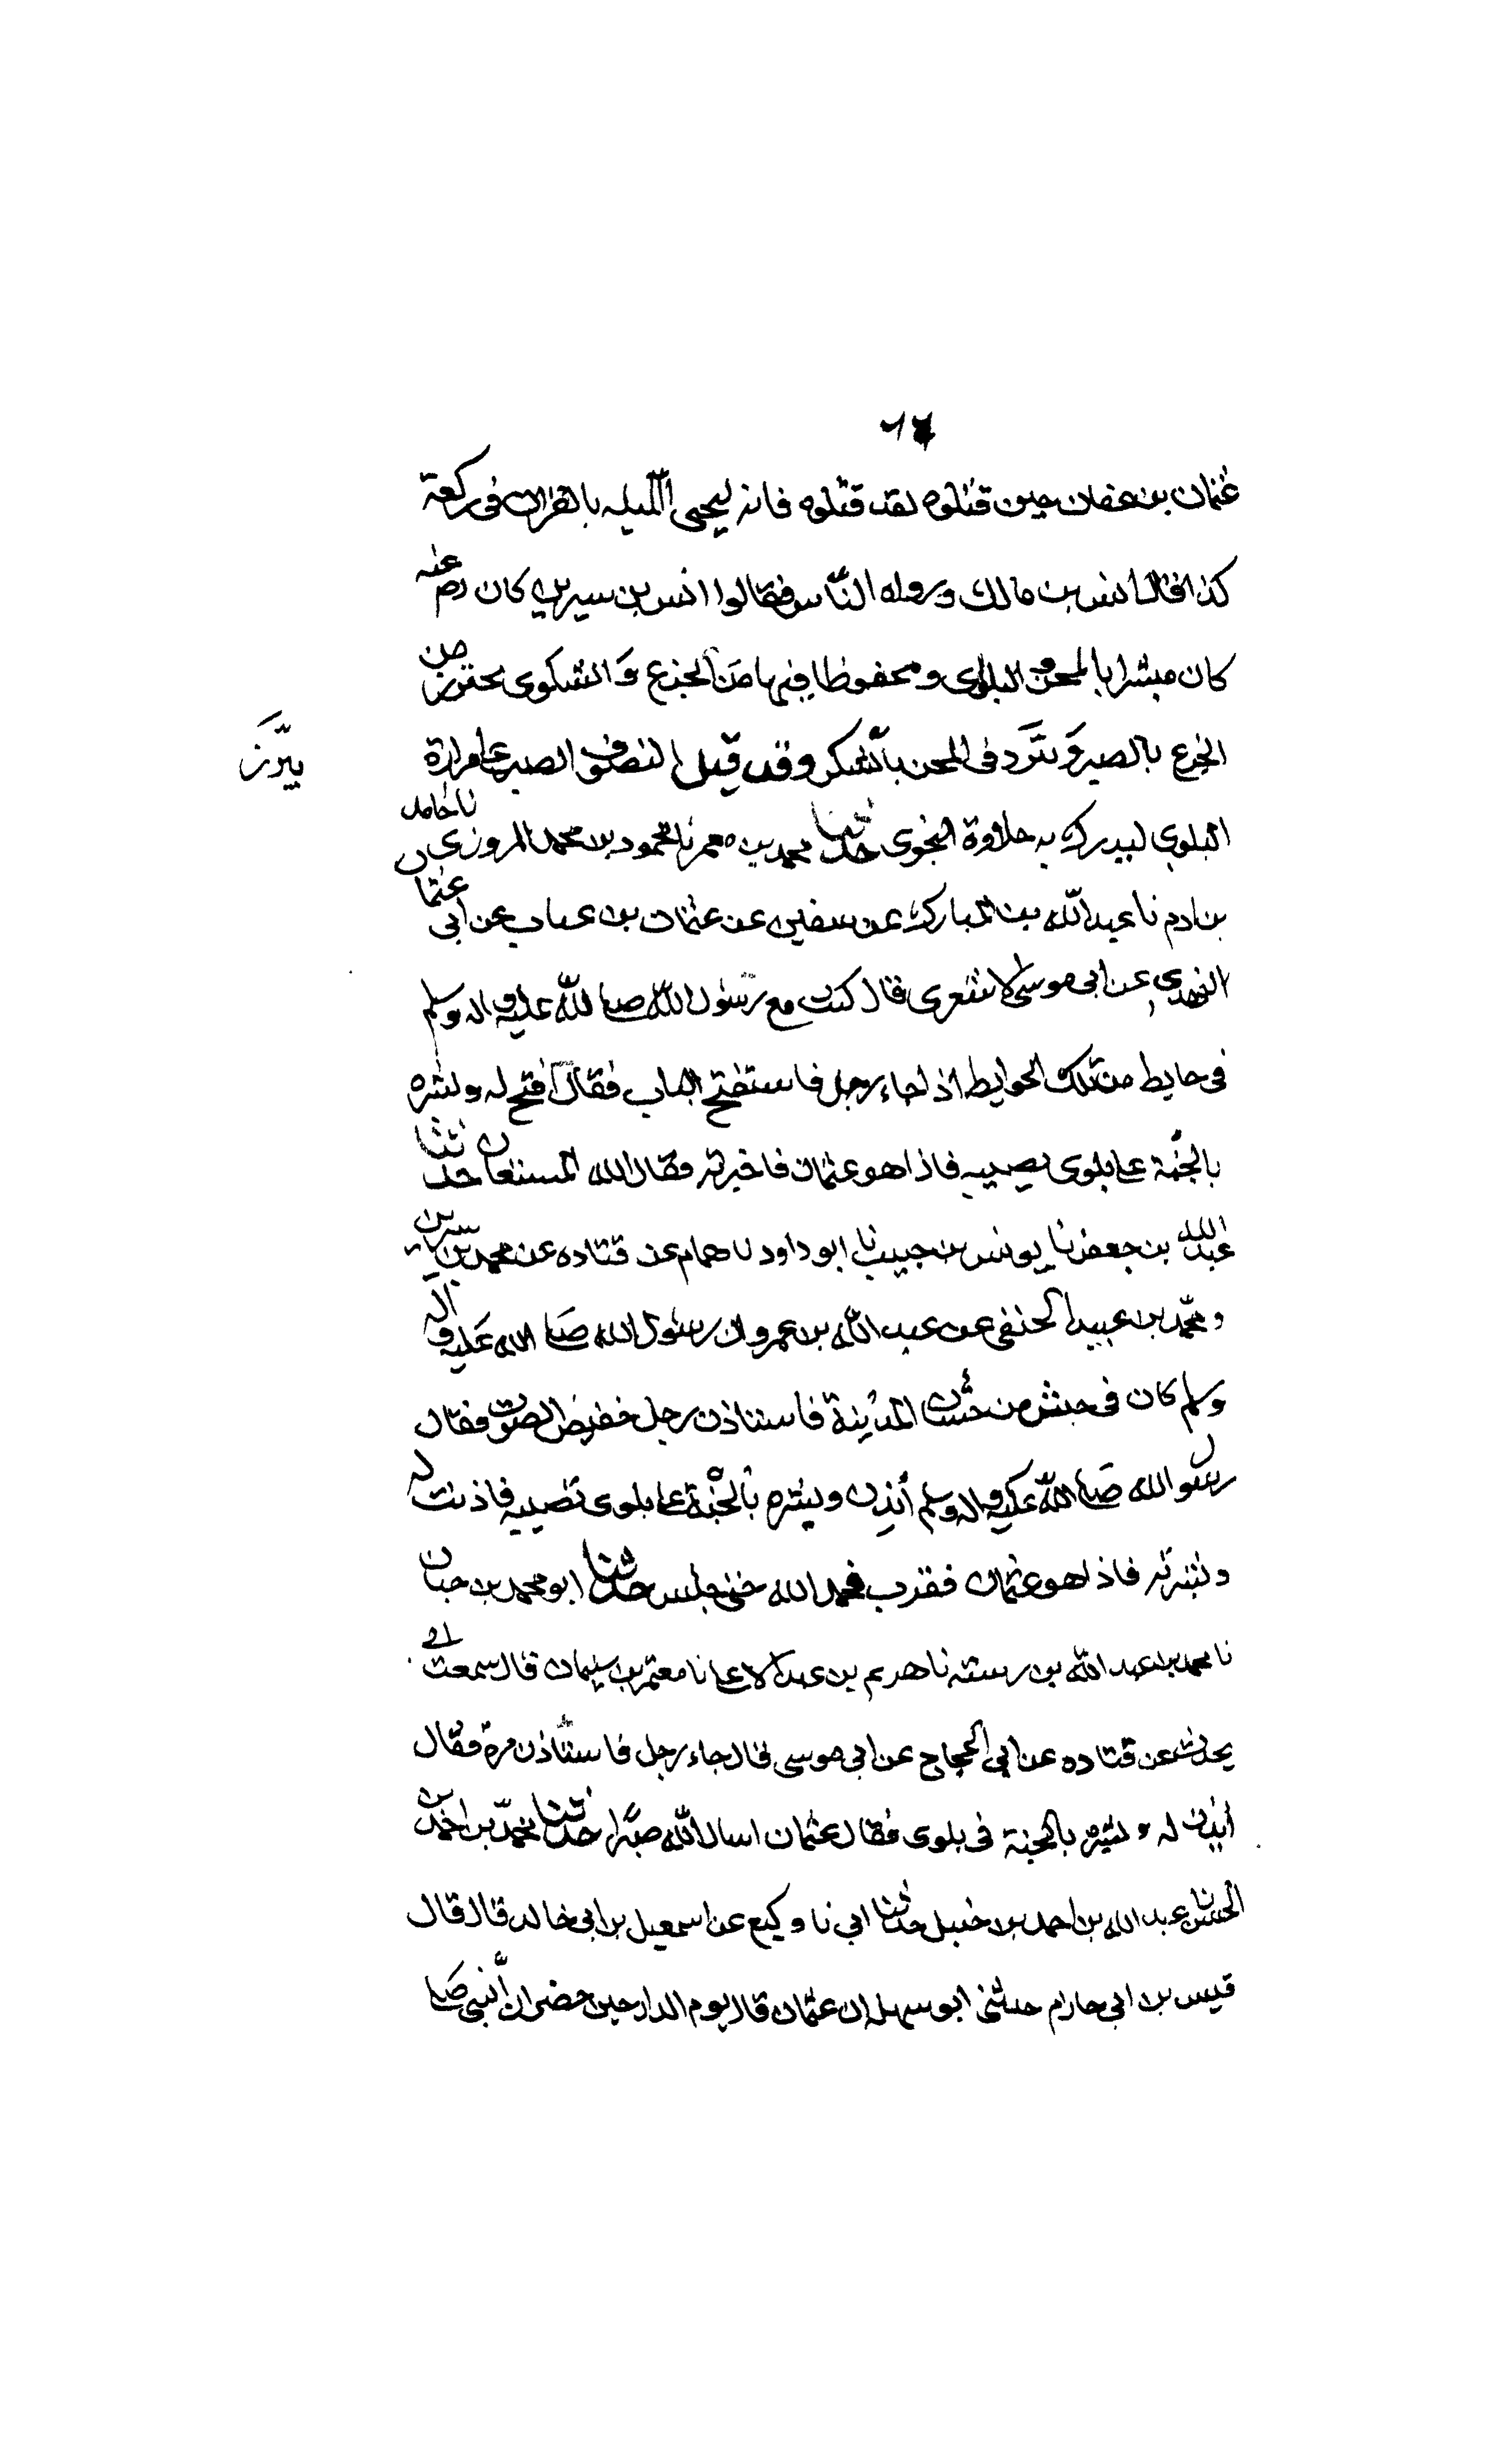 عثمان بن عفان حين قتلوه لقد قتلوه فانه ليحيى الليله بالقران فى ركعة
كذا قال انس بن مالك ورواه الناس فقالوا انس بن سيرين كان رضى عنه
كان مبشرا بالمحن و البلوى ومحفوظا فيها من الجزع و الشكوى يحترز من
الجزع بالصبر و يتبرد فى المحن بالشكر وقد قيل التصوف الصبر على مرارة
يبرز
البلوى ليدرك به حلاوة النجوى حدثنا محمد بن معمر نا محمود بن محمد المروزى نا حامد
بن ادم نا عبد الله بن المبارك عن سفين عن عثمان بن عياب عن ابى عثمان
النهدى عن ابى موسى الاشعرى قال كنت مع رسول الله صلى الله عليه و اله وسلم
فى حايط من تلك الحوايط اذ جاء رجل فاستفتح الباب فقال افتح له وبشره
بالجنة على بلوى تصيبه فاذا هو عثمان فاخبرته فقال الله المستعان حدثنا
عبد الله بن جعفر نا يونس بن حبيب نا ابو داود نا همام عن قتاده عن محمد بن سيرين
و محمد بن عبيد الحنفى عن عبد الله بن عمرو ان رسول الله صلى الله عليه و اله
وسلم كان فى حش من حشان المدينة فاستاذن رجل خفيض الصوت فقال
رسول الله صلى الله عليه و اله وسلم أئذن و بشره بالجنة على بلوى تصيبه فاذنت له
و بشرته فاذا هو عثمان فقرب فحمد الله حتى جلس حدثنا ابو محمد بن حيان
نا محمد بن عبد الله بن رسته نا هريم بن عبد الاعلى نا معتمر بن سليمان قال سمعت ابى
يحدث عن قتاده عن ابى الحجاج عن ابى موسى قال جاء رجل فاستاذن مرة فقال
أئذن له و بشره بالجنة فى بلوى فقال عثمان اسال الله صبرا حدثنا محمد بن احمد بن
الحسن نا عبد الله بن احمد بن حنبل حدثنا ابى نا وكيع عن اسمعيل بن ابى خالد قال قال
قيس بن ابى حازم حدثنى ابو سهله ان عثمان قال يوم الدار حين حضر ان النبى صلى